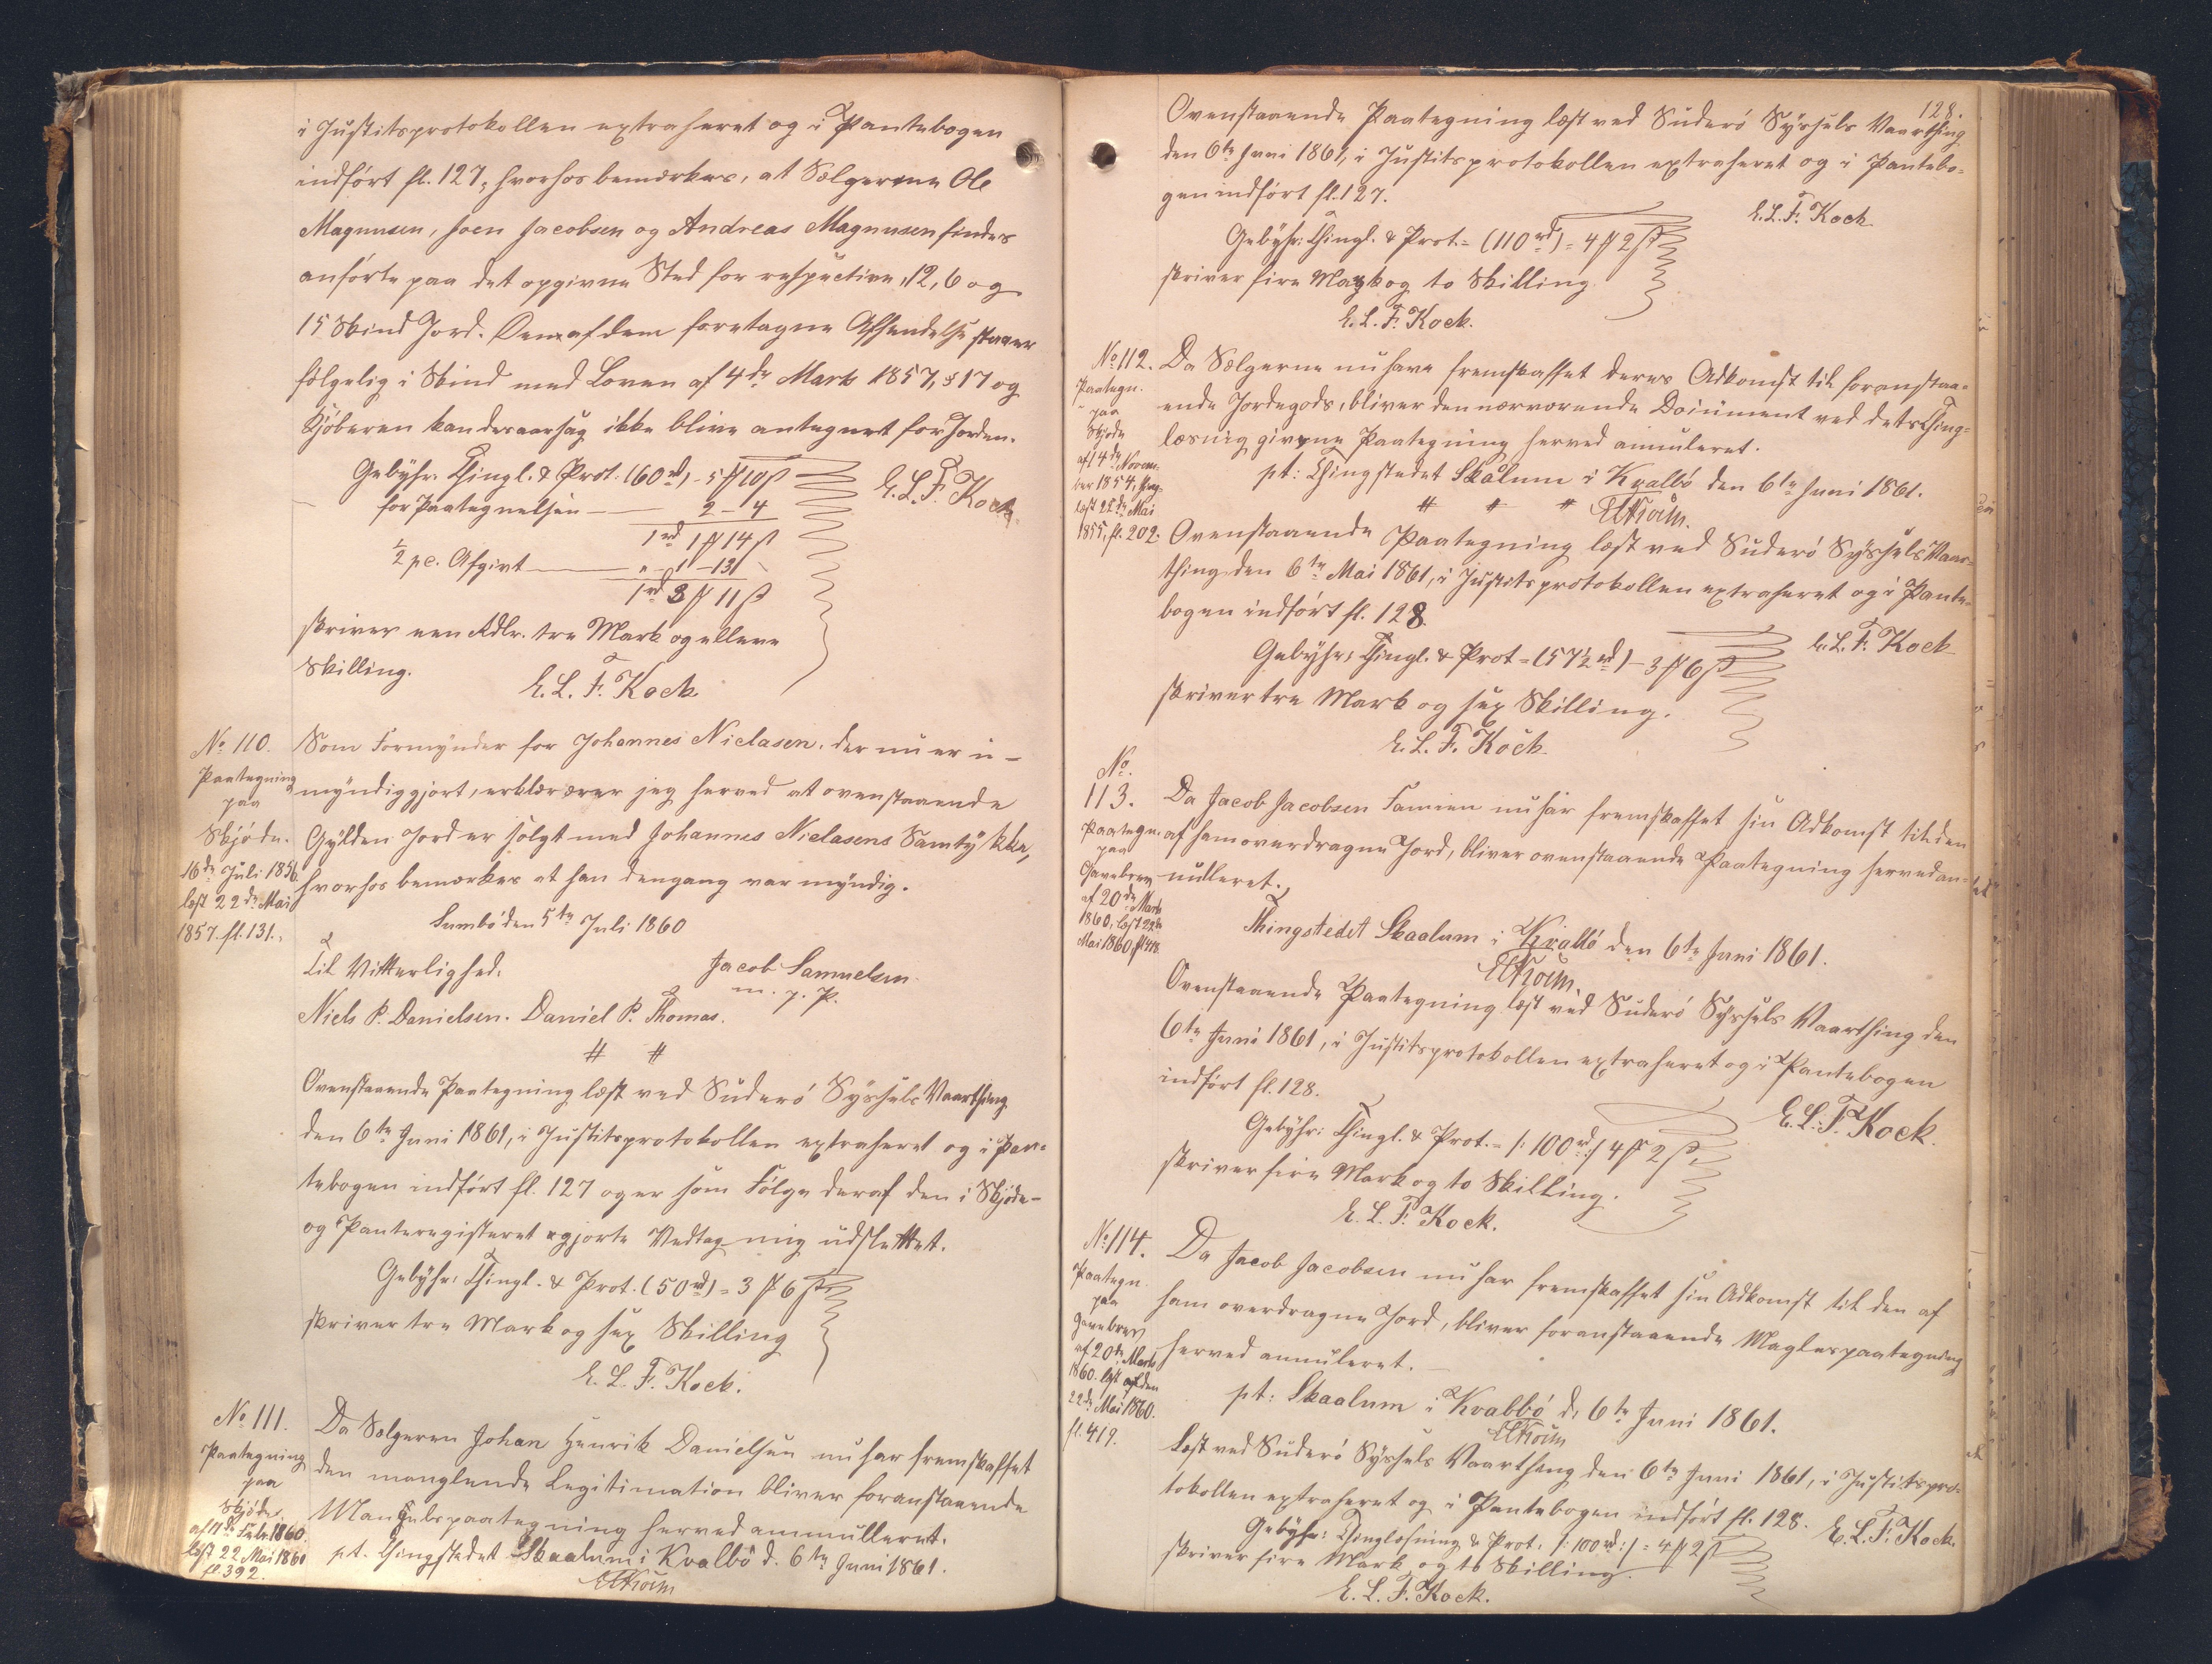 i Justitsprotokollen extraheret og i Pantebogen
indført fl. 127, hvorhos bemærkes, at Sælgerne Ole
Magnusen, Joen Jacobsen og Andreas Magnusen findes
anførte paa det opgivne Sted for respective, 12, 6 og
15 Skind Jord. Den af dem foretagne Afhændelse staaer
følgelig i Strid med Loven af 4de Marts 1857, § 17 og
Kjøberen kan desaarsag ikke blive antegnet for Jorden.
Gebyhr: Thingl. & Prot. (60 rd) - 5 ℳ 10 β
E. L. F. Kock
for Paategnelsen — 2 - 4
1 rd 1 ℳ 14 β
½ pc. Afgivt — " - 1 - 13
1 rd 3 ℳ 11 β
skriver een Rdlr. tre Mark og elleve
Skilling.
E. L. F. Kock
No 110.
Paategning
paa
Skjøde.
16de Juli 1856
læst 22de Mai
1857. fl. 131.
Som Formynder for Johannes Niclasen, der nu er u-
myndiggjort, erklærerer jeg herved at ovenstaaende
Gylden Jord er solgt med Johannes Niclasens Samtykke,
hvorhos bemærkes at han dengang var myndig.
Sumbø den 5te Juli 1860
Til Vitterlighed.
Jacob Samuelsen
m. p. P.
Niels P. Danielsen. Daniel P. Thomas.
# #
Ovenstaaende Paategning læst ved Suderø Syssels Vaarthing
den 6te Juni 1861, i Justitsprotokollen extraheret og i Pan-
tebogen indført fl. 127 og er som Følge deraf den i Skjøde-
og Panteregisteret gjorte Vedtegning udslettet.
Gebyhr: Thingl. & Prot. (50 rd) = 3 ℳ 6 β
skriver tre Mark og sex Skilling
E. L. F. Kock.
No 111.
Paategning
paa
Skjøde.
læst 22 Mai 1860
fl. 392.
Da Sælgeren Johan Henrik Danielsen nu har fremskaffet
den manglende Legitimation bliver foranstaaende
Mangelspaategning herved annulleret.
pt. Thingstedet Skaalum i Kvalbø d. 6te Juni 1861.
128.
Ovenstaaende Paategning læst ved Suderø Syssels Vaarthing
den 6te Juni 1861, i Justitsprotokollen extraheret og i Pantebo-
gen indført fl. 127.
E. L. F. Kock
Gebyhr: Thingl. & Prot. = (110 rd) = 4 ℳ 2 β
skriver fire Mark og to Skilling
E. L. F. Kock.
No 112.
Paategn.
paa
Skjøde
af 14de Novem-
ber 1854, thing-
læst 25de Mai
1855, fl. 202.
Da Sælgerne nu have fremskaffet deres Adkomst til foranstaa-
ende Jordegods, bliver den nærværende Document ved dets Thing-
læsning givne Paategning herved annuleret.
pt: Thingstedet Skålum i Kvalbø den 6te Juni 1861.
# # #
Ovenstaaende Paategning læst ved Suderø Syssels Vaar-
thing den 6te Mai 1861, i Justitsprotokollen extraheret og i Pante-
bogen indført fl. 128.
E. L. F. Kock
Gebyhr: Thingl. & Prot = (57½ rd) - 3 ℳ 6 β
skriver tre Mark og sex Skilling.
E. L. F. Kock
No.
113.
Paategn.
paa
Gavebrev
af 20de Marts
1860, læst 22de
Mai 1860, fl. 418
Da Jacob Jacobsen Famien nu har fremskaffet sin Adkomst til den
af ham overdragne Jord, bliver ovenstaaende Paategning herved an-
nulleret.
Thingstedet Skaalum i Kvalbø den 6te Juni 1861.
Ovenstaaende Paategning læst ved Suderø Syssels Vaarthing den
6te Juni 1861, i Justitsprotokollen extraheret og i Pantebogen
indført fl. 128.
E. L. F. Kock.
Gebyhr: Thingl. & Prot. = /: 100 rd :/ 4 ℳ 2 β.
skriver fire Mark og to Skilling.
E. L. F. Kock.
No 114.
Paategn.
paa
Gavebrev
af 20de Marts
1860. læst den
22de Mai 1860.
fl. 419.
Da Jacob Jacobsen nu har fremskaffet sin Adkomst til den af
ham overdragne Jord, bliver foranstaaende Manglespaategning
herved annuleret.
pt: Skaalum i Kvalbø d. 6te Juni 1861.
Læst ved Suderø Syssels Vaarthing den 6te Juni 1861, i Justitspro-
tokollen extraheret og i Pantebogen indført fl. 128.
E. L. F. Kock.
Gebyhr: Thinglæsning & Prot: /: 100 rd :/ = 4 ℳ 2 β
skriver fire Mark og to Skilling.
E. L. F. Kock.